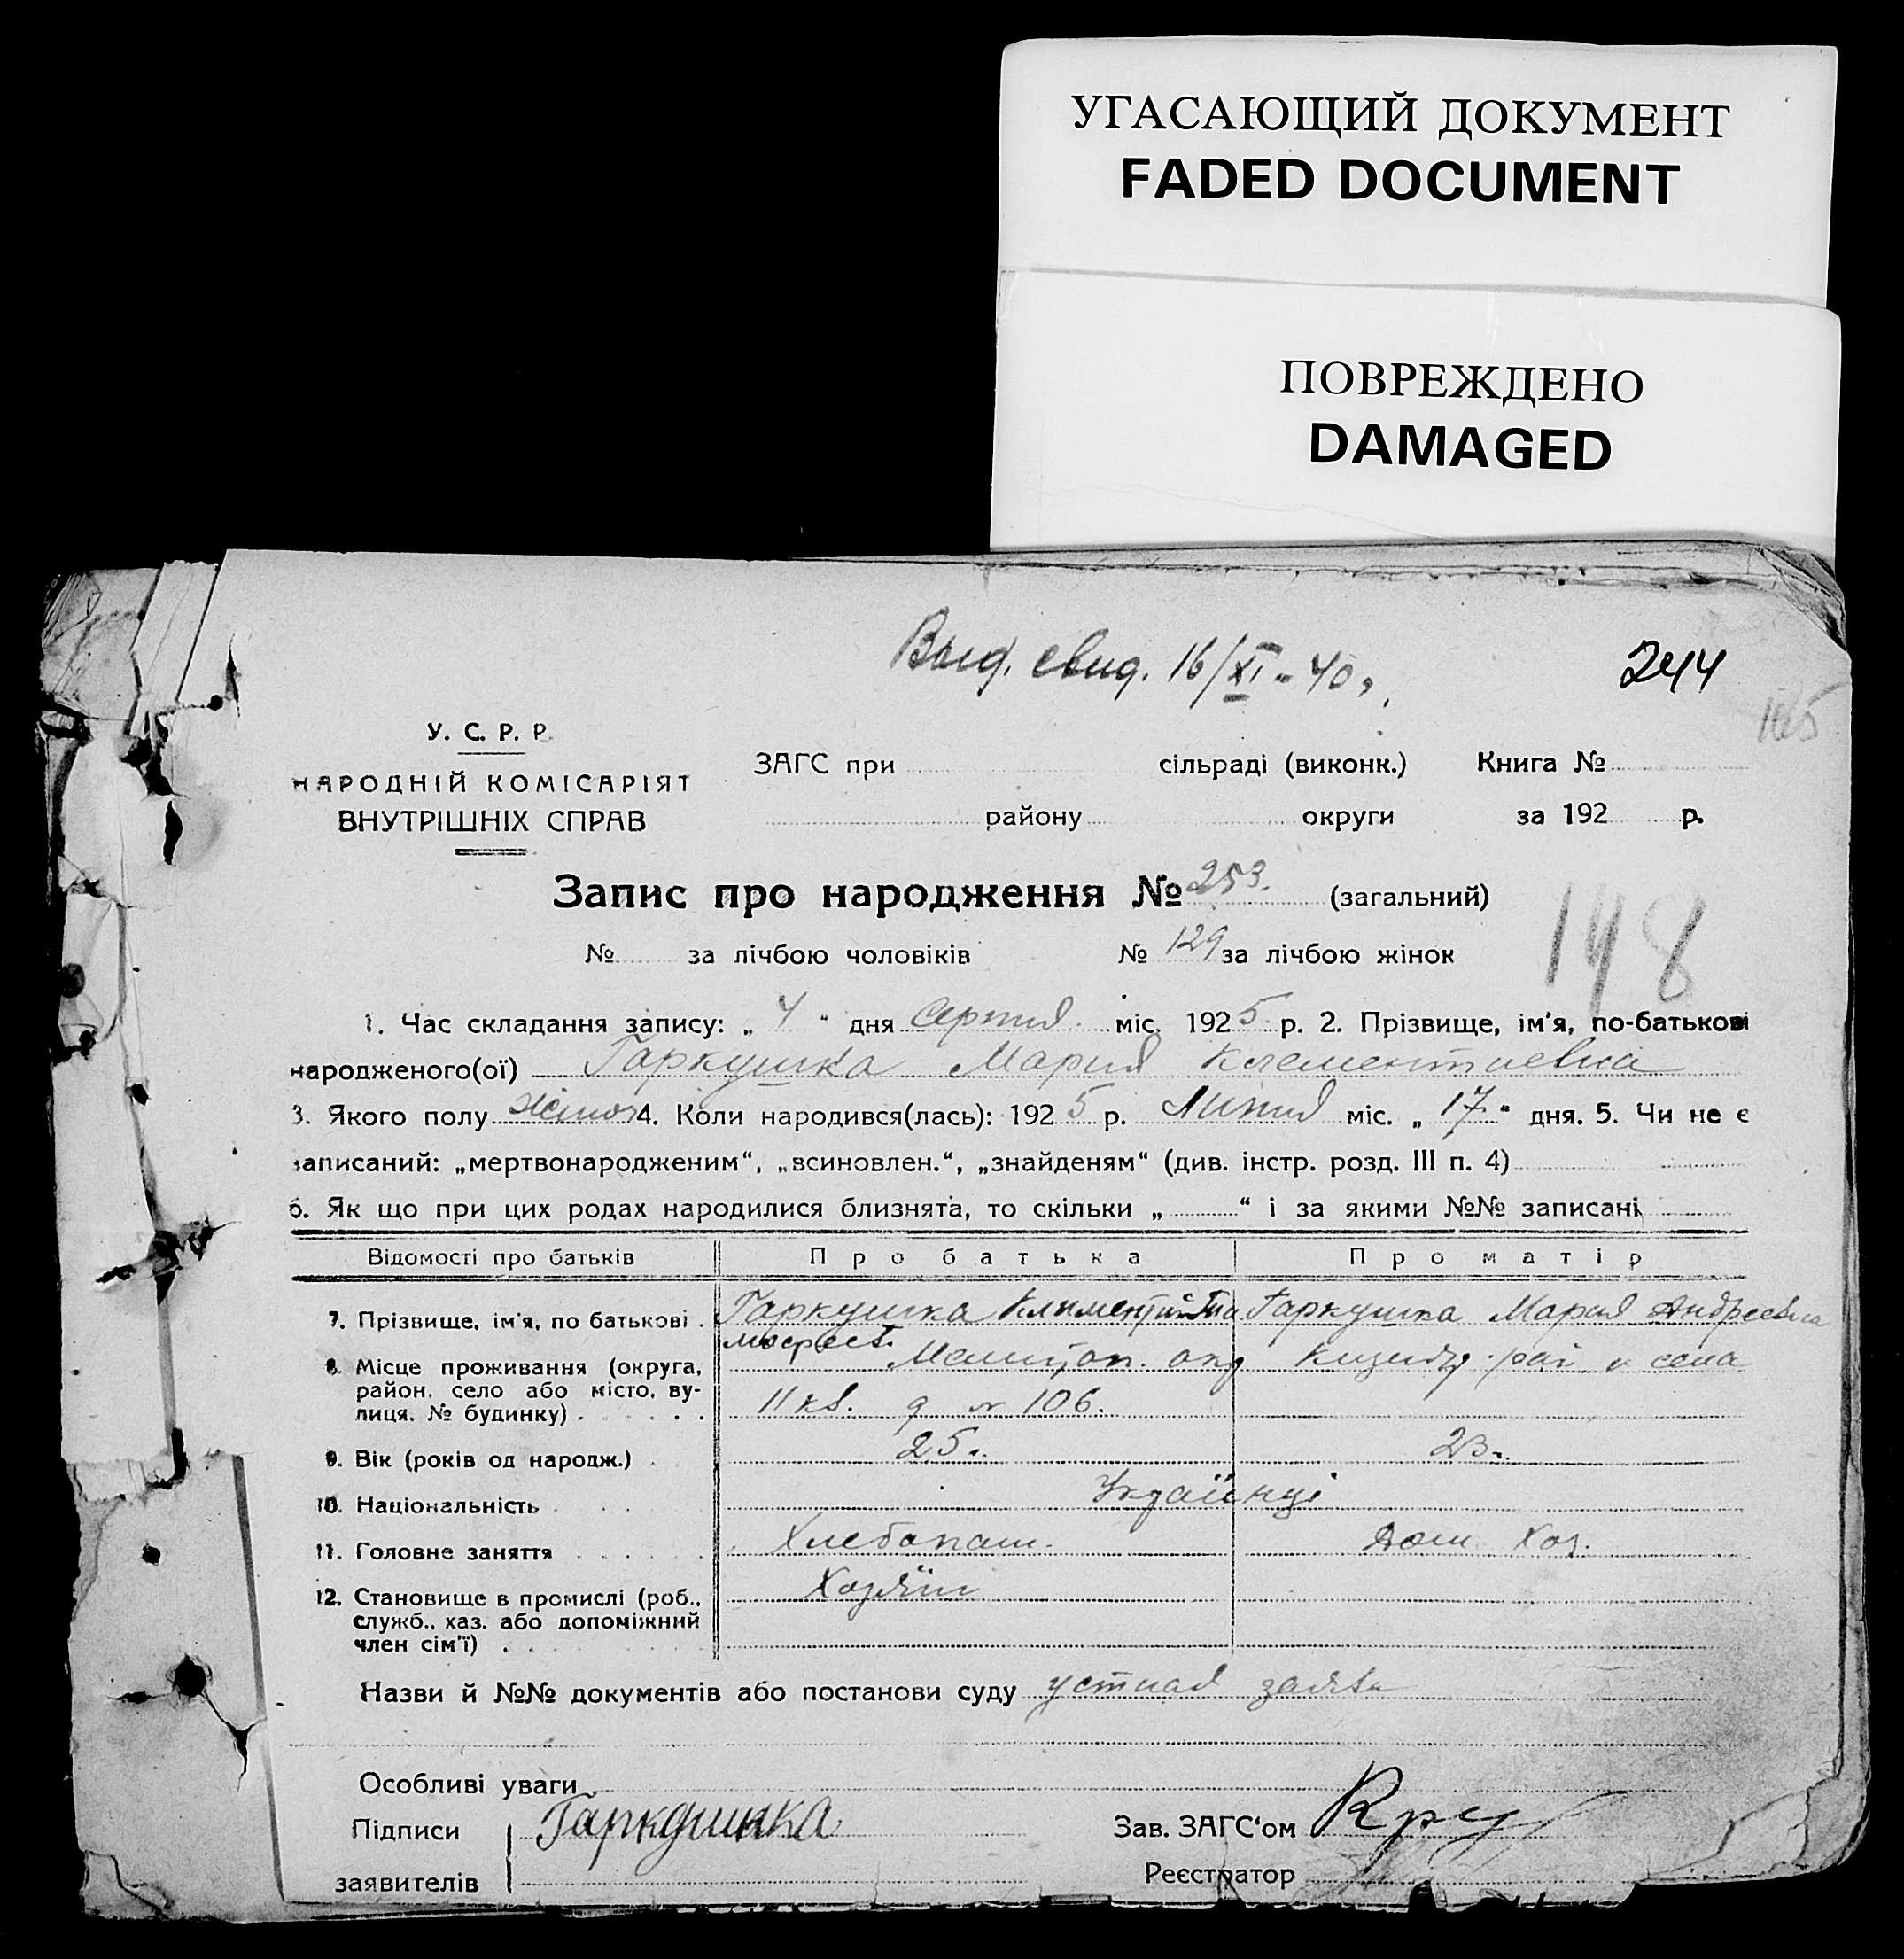 УГАСАЮЩИЙ ДОКУМЕНТ
FADED DOCUMENT
ПОВРЕЖДЕНО
DAMAGED
Выд. свид. 16/XI - 40 г.
244
165
У. С. Р. Р.
НАРОДНІЙ КОМІСАРІЯТ
ВНУТРІШНІХ СПРАВ
ЗАГС при сільраді (виконк.) Книга №
району округи за 192 р.
Запис про народження № 253. (загальний)
№ за лічбою чоловіків № 129 за лічбою жінок
148
1. Час складання запису: „ 4 “ дня Серпня міс. 1925 р. 2. Прізвище, ім'я, по-батькові
народженого(ої) Гаркушка Мария Клементиевна
3. Якого полу жіноч 4. Коли народився(лась): 1925 р. Липня міс. „ 17 “ дня. 5. Чи не є
записаний: „мертвонародженим“, „всиновлен.“, „знайденям“ (див. інстр. розд. III п. 4)
6. Як що при цих родах народилися близнята, то скільки „ “ і за якими №№ записані
Відомості про батьків Про батька Про матір
7. Прізвище, ім'я, по батькові Гаркушка Климентий Гаркушка Мария Андреевна
8. Місце проживання (округа,
район, село або місто, ву-
лиця, № будинку) 11 кв. д № 106.
9. Вік (років од народж.) 25. 23.
10. Національність Українці
11. Головне заняття Хлебопаш. Дом Хоз.
12. Становище в промислі (роб., Хозяїн
служб., хаз. або допоміжний
член сім'ї)
Назви й №№ документів або постанови суду устная заява
Особливі уваги
Підписи Гаркушка Зав. ЗАГС'ом
заявителів Реєстратор